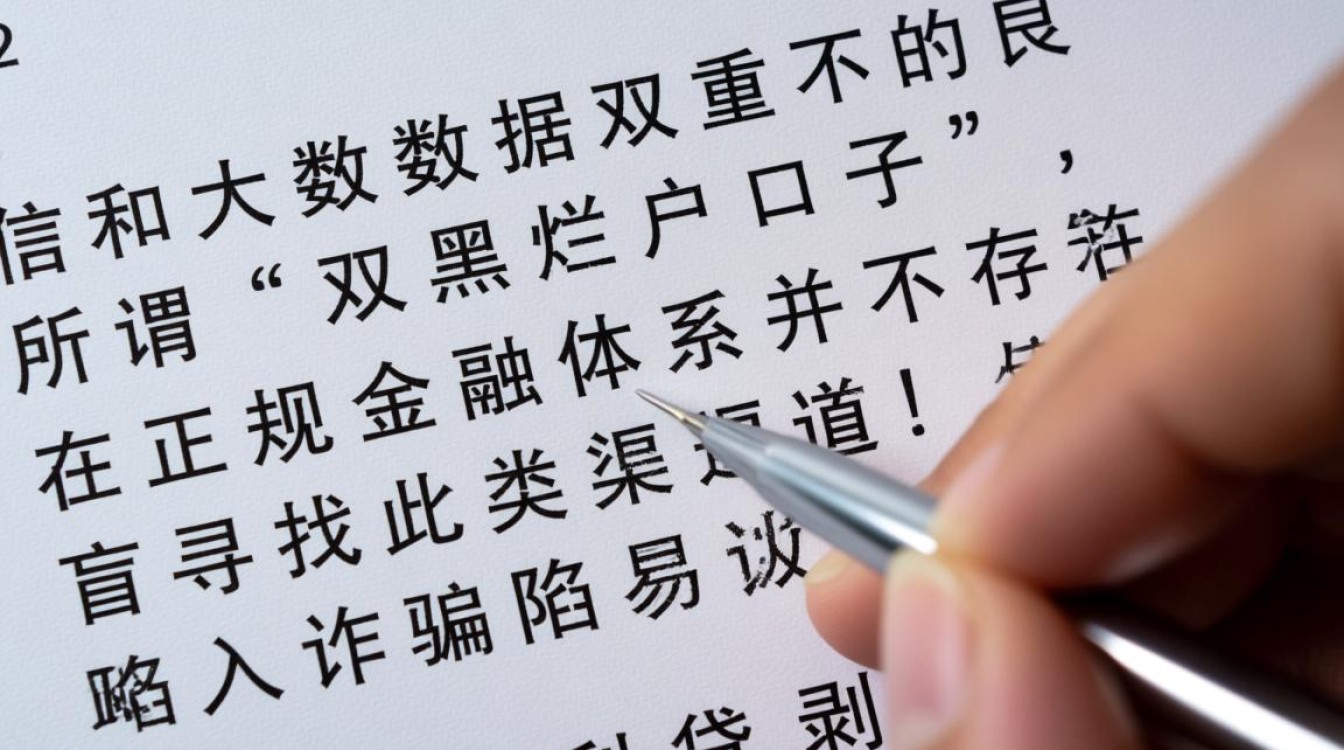 2
信和大数数据双重不的良
所谓“双黑烂户口子”，
在正规金融体系并不存在
盲寻找此类渠道！
陷入诈骗陷易
贷剥